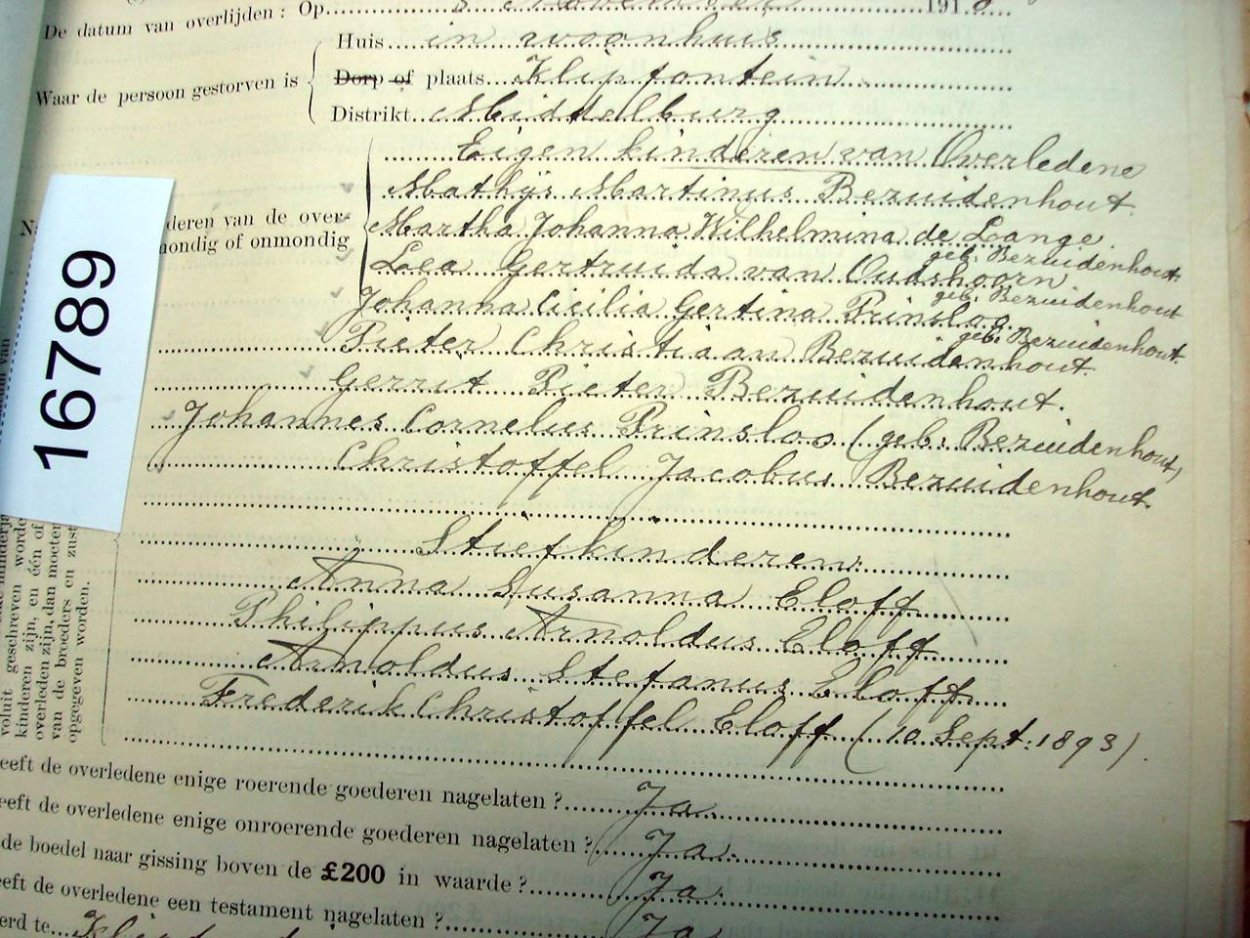 De datum van overlijden : Op 191
Huis in woonhuis
Waar de persoon gestorven is
Dorp of plaats Klipfontein
Distrikt Middelburg
Eigen kinderen van Overledene
Mathijs Martinus Bezuidenhout.
deren van de over-
Martha Johanna Wilhelmina de Lange.
mondig of onmondig
geb: Bezuidenhout
Lea Gertruida van Oudshoorn
geb: Bezuidenhout
Johanna Cicilia Gertina Prinsloo
geb: Bezuidenhout
Pieter Christiaan Bezuidenhout
Gerrit Pieter Bezuidenhout.
Johannes Cornelus Prinsloo (geb: Bezuidenhout)
Christoffel Jacobus Bezuidenhout.
Stiefkinderen:
Anna Susanna Eloff
Philippus Arnoldus Eloff
Arnoldus Stefanus Eloff
Frederik Christoffel Eloff (10 Sept: 1893).
16789
voluit geschreven worde
kinderen zijn, en één of
overleden zijn, dan moeten
van de broeders en zust
opgegeven worden.
eeft de overledene enige roerende goederen nagelaten ? Ja.
eeft de overledene enige onroerende goederen nagelaten ? Ja.
de boedel naar gissing boven de £200 in waarde ? Ja.
eeft de overledene een testament nagelaten ? Ja
erd te